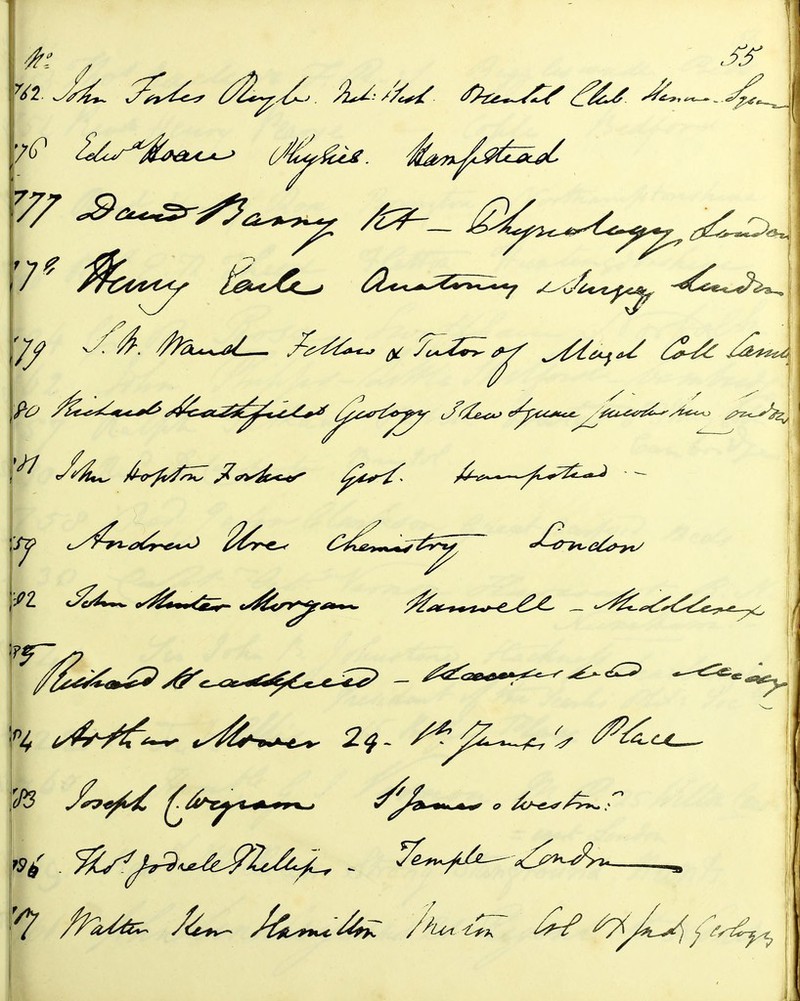 No. 55
762. John Forbes Royle. Nat: Hist. Oriental Club. Hanover Square
776 Edwd Hoare Physics. Hampstead
777 David Barry Kt - Physiology, London
778 Henry Earle Anatomy & Surgery London
779 S. W. Waud Fellow & Tutor of Magd Coll Camb.
780 Richard Heathfield Geology 3 New Square Lincolns Inn London
781 John Hopton Forbes Geol. Hampstead -
759 Andrew Ure Chemistry London
782 John Minter Morgan Hanwell - Middlesex
785 Richard Heathfield - Hampstead
784 Arthur Mower 29. St. James's Place
783 Joseph C. Wigram St James
786. Thos. Jodrell Phillips - Temple London
787 Walter Kerr Hamilton Merton Col Oxford, Geology